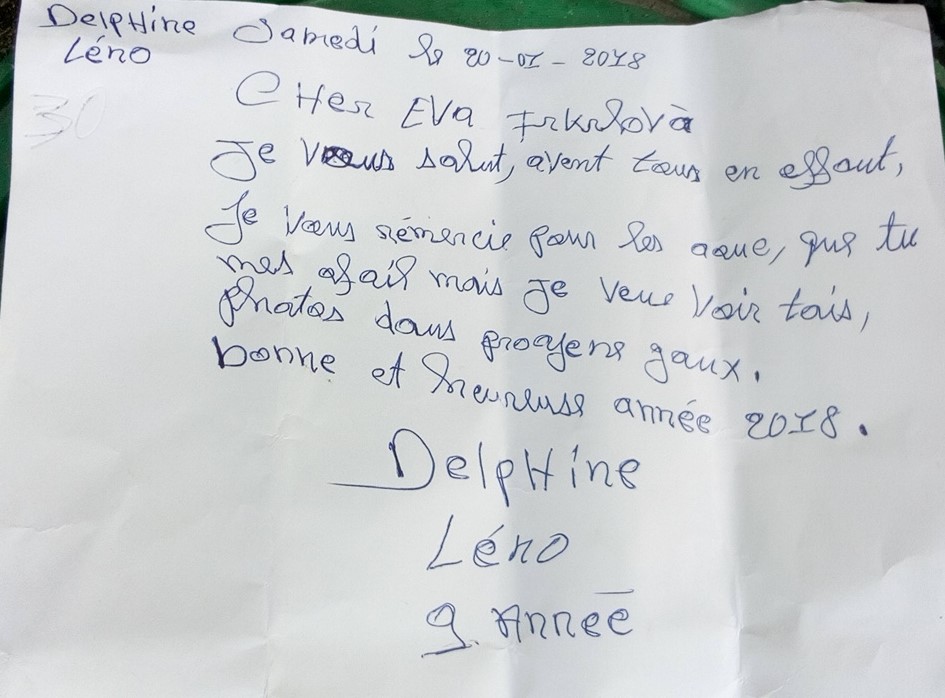 Delphine Samedi le 20-01-2018
Léno
30
CHer EVa Irkrlovà
Je vous salut, avent tous en effaut,
Je Vous rémercie pour les aque, que tu
mes afail mais je veue Voir tais,
photos dans progens gaux.
bonne et heureuse année 2018.
DelpHine
Léno
9. Année